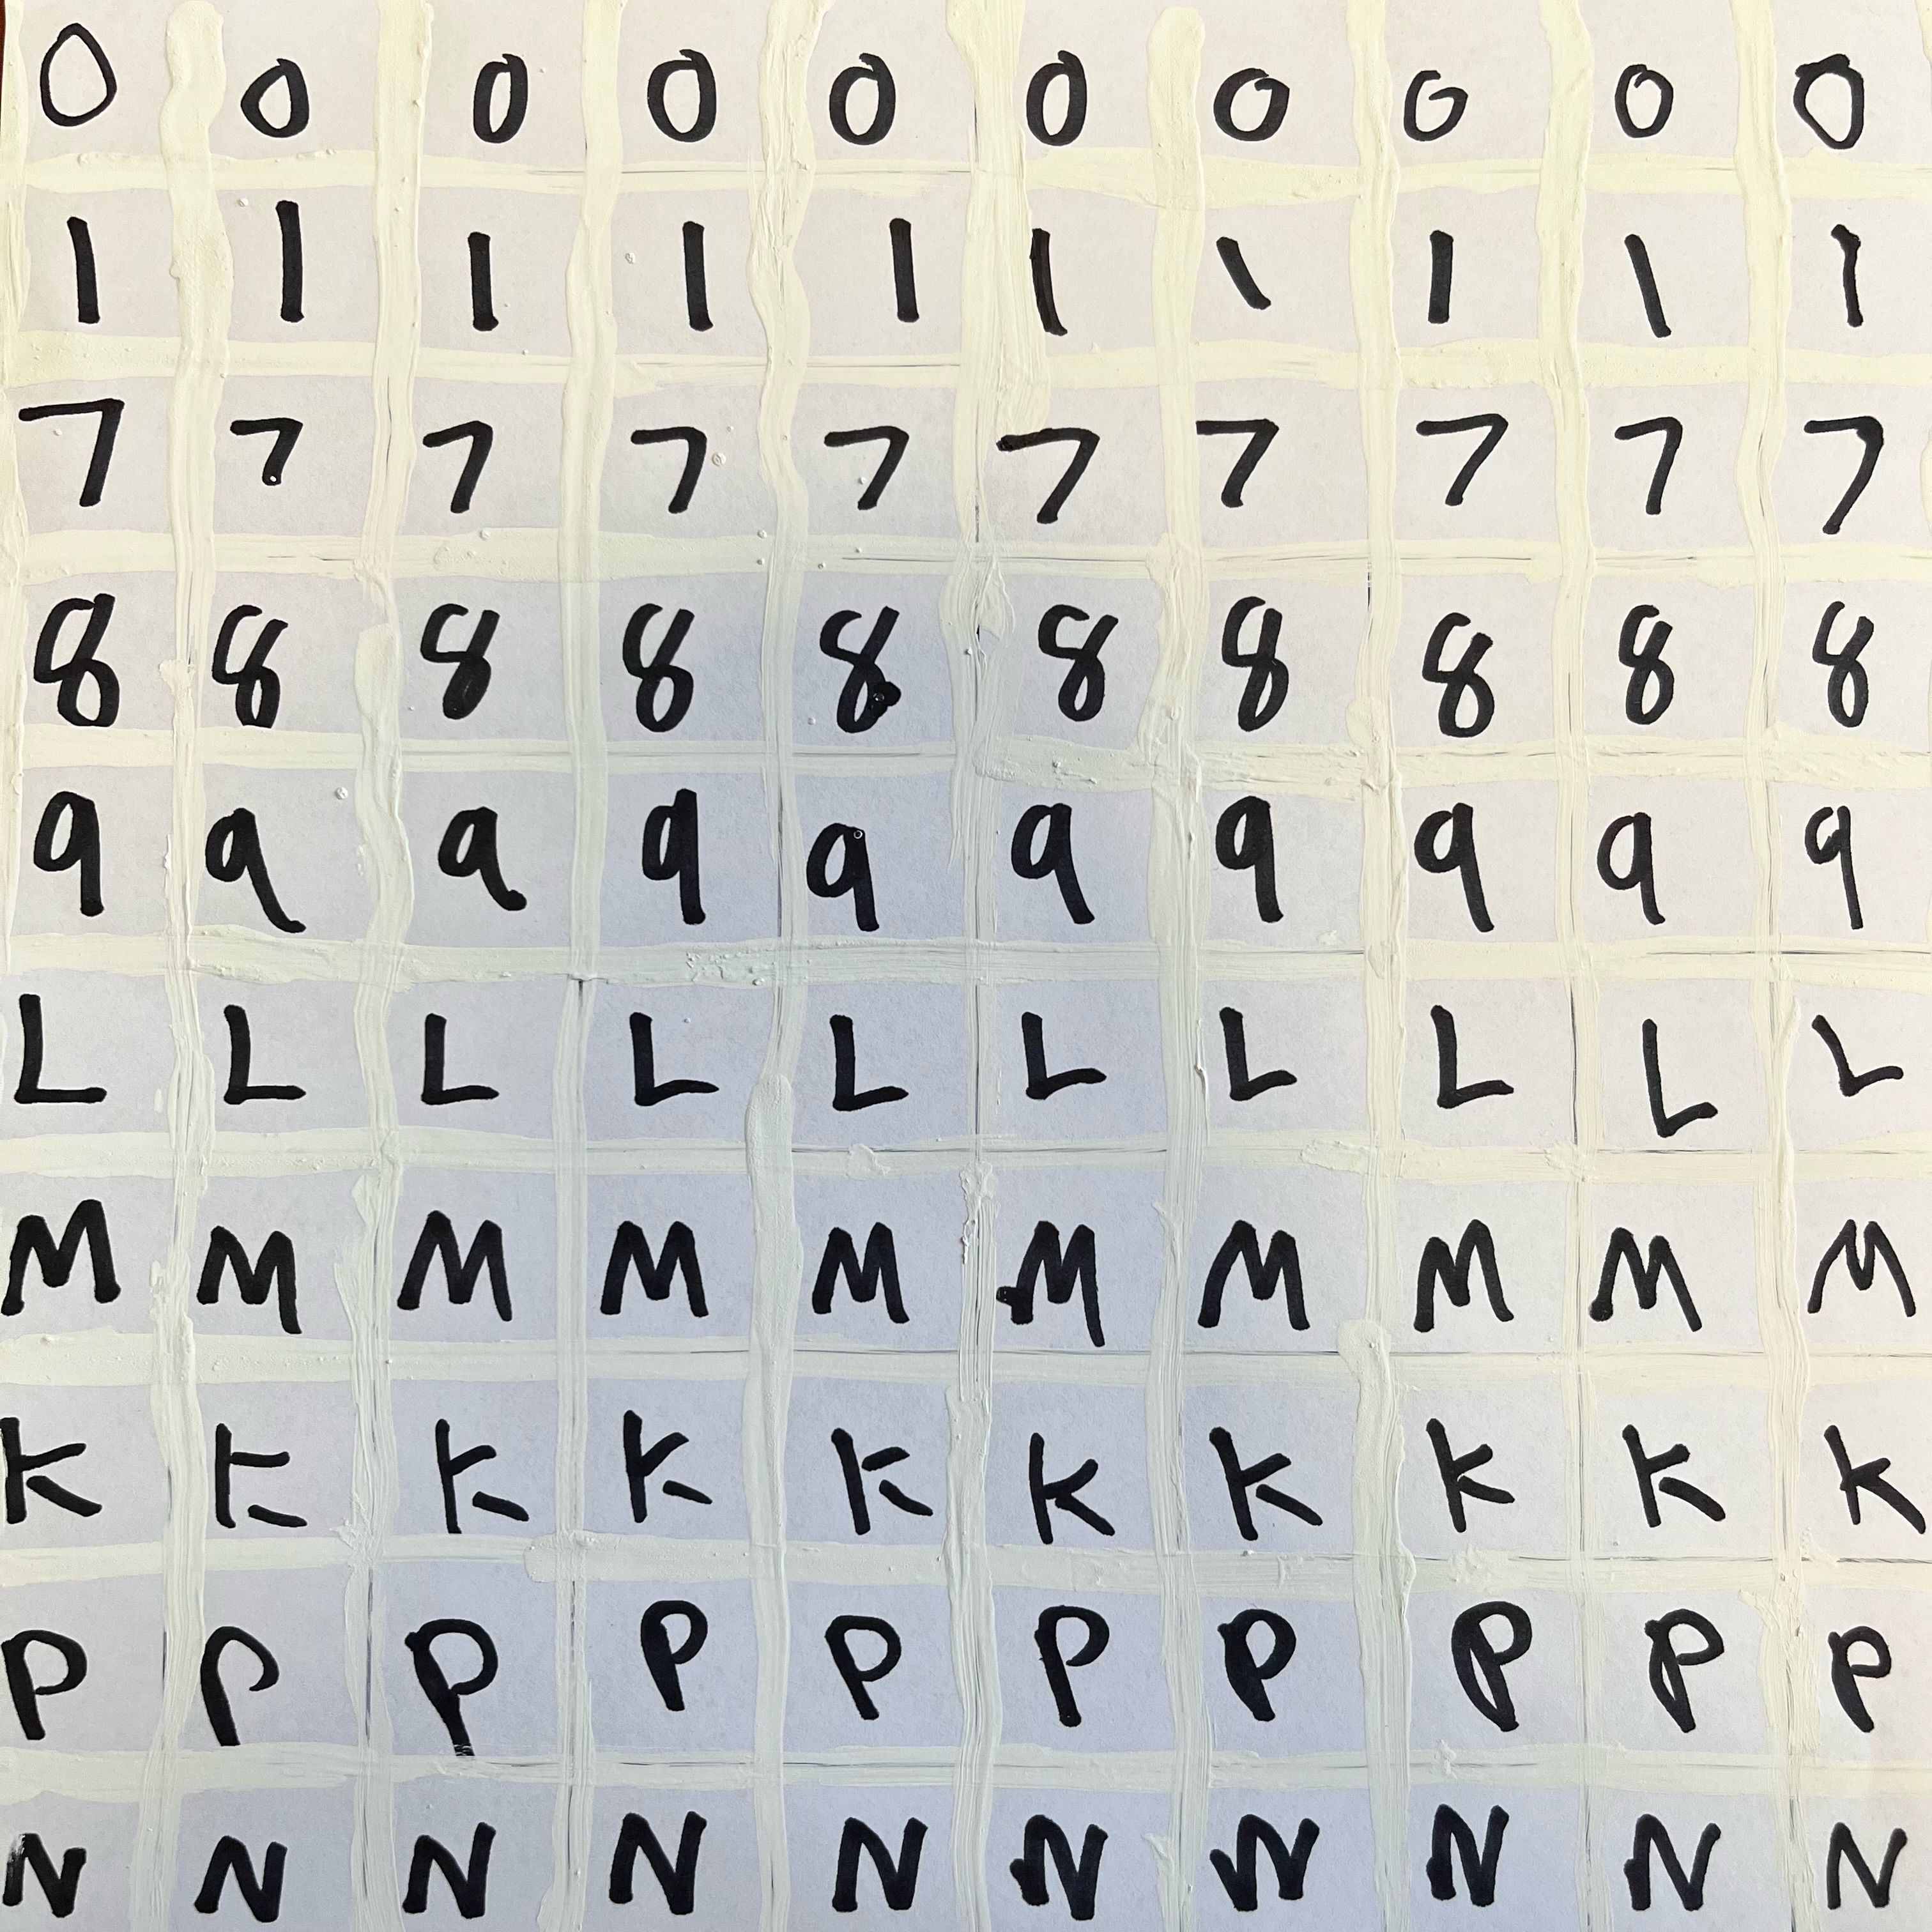 0 0 0 0 0 0 0 0 0 0
1 1 1 1 1 1 1 1 1 1
7 7 7 7 7 7 7 7 7 7
8 8 8 8 8 8 8 8 8 8
9 9 9 9 9 9 9 9 9 9
L L L L L L L L L L
M M M M M M M M M M
K K K K K K K K K K
P P P P P P P P P P
N N N N N N N N N N